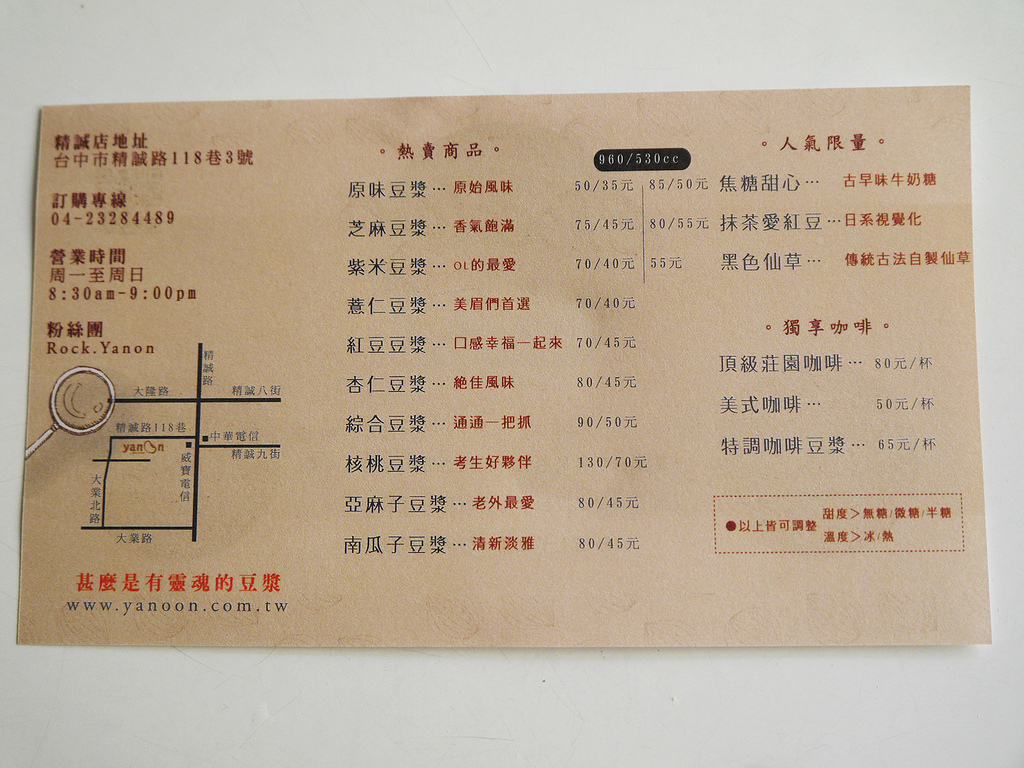 精誠店地址
台中市精誠路118巷3號
訂購專線
04-23284489
營業時間
周一至周日
8:30am-9:00pm
粉絲團
Rock.Yanon
精誠路
大隆路
精誠八街
精誠路118巷
中華電信
yanoon
威寶電信
精誠九街
大業北路
大業路
甚麼是有靈魂的豆漿
www.yanoon.com.tw
。熱賣商品。
960/530cc
原味豆漿…原始風味 50/35元
芝麻豆漿…香氣飽滿 75/45元
紫米豆漿…OL的最愛 70/40元
薏仁豆漿…美眉們首選 70/40元
紅豆豆漿…口感幸福一起來 70/45元
杏仁豆漿…絶佳風味 80/45元
綜合豆漿…通通一把抓 90/50元
核桃豆漿…考生好夥伴 130/70元
亞麻子豆漿…老外最愛 80/45元
南瓜子豆漿…清新淡雅 80/45元
。人氣限量。
85/50元 焦糖甜心…古早味牛奶糖
80/55元 抹茶愛紅豆…日系視覺化
55元 黑色仙草…傳統古法自製仙草
。獨享咖啡。
頂級莊園咖啡…80元/杯
美式咖啡…50元/杯
特調咖啡豆漿…65元/杯
●以上皆可調整
甜度>無糖/微糖/半糖
溫度>冰/熱